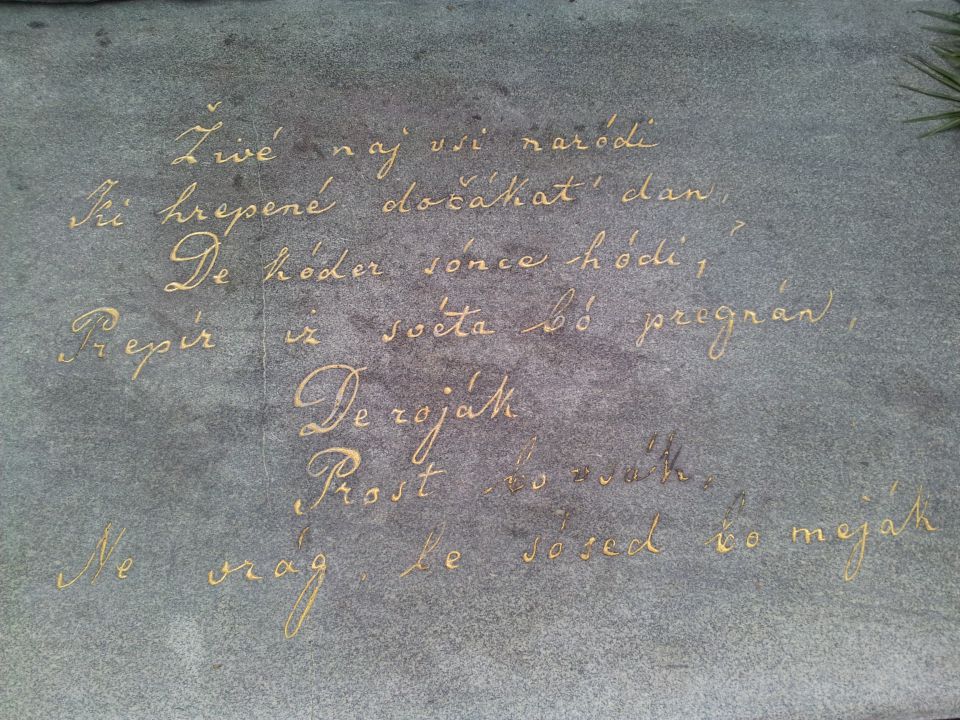 Živé naj vsi naródi
Ki hrepené dočákat' dan,
De kóder sónce hódi,
Prepír iz svéta bó pregnán,
De roják
Prost bo vsák,
Ne vrág, le sósed bo meják